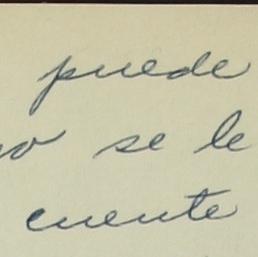 puede
se le
cuente